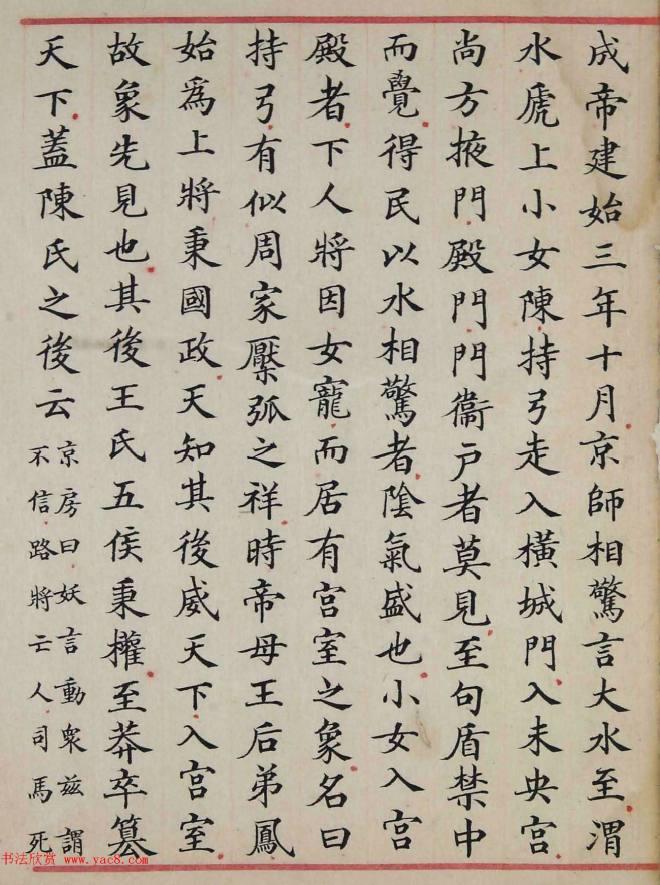 成帝建始三年十月京師相驚言大水至渭
水虒上小女陳持弓走入橫城門入未央宮
尚方掖門殿門門衞戶者莫見至句盾禁中
而覺得民以水相驚者陰氣盛也小女入宮
殿者下人將因女寵而居有宮室之象名曰
持弓有似周家檿弧之祥時帝母王后弟鳳
始爲上將秉國政天知其後威天下入宮室
故象先見也其後王氏五侯秉權至莽卒篡
天下蓋陳氏之後云
京房曰妖言動衆兹謂
不信路將亡人司馬死
书法欣赏 www.yac8.com